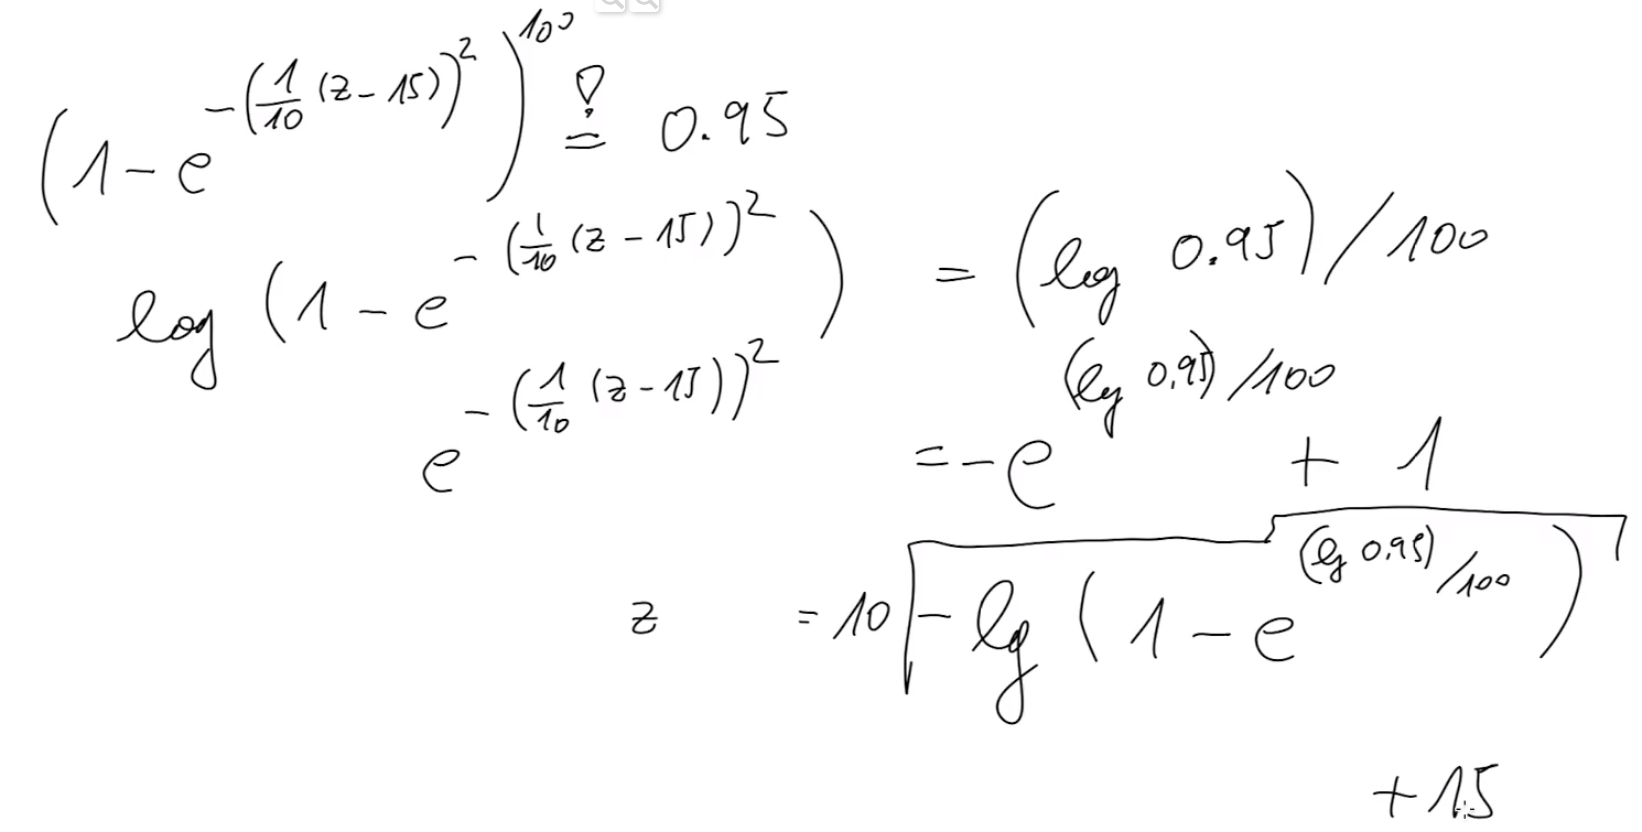 (1 - e^{-(\frac{1}{10}(z-15))^2})^{100} \stackrel{!}{=} 0.95
log (1 - e^{-(\frac{1}{10}(z-15))^2}) = (log 0.95)/100
e^{-(\frac{1}{10}(z-15))^2} = -e^{(lg 0.95)/100} + 1
z = 10 \sqrt{-lg (1 - e^{(lg 0.95)/100})}
+ 15